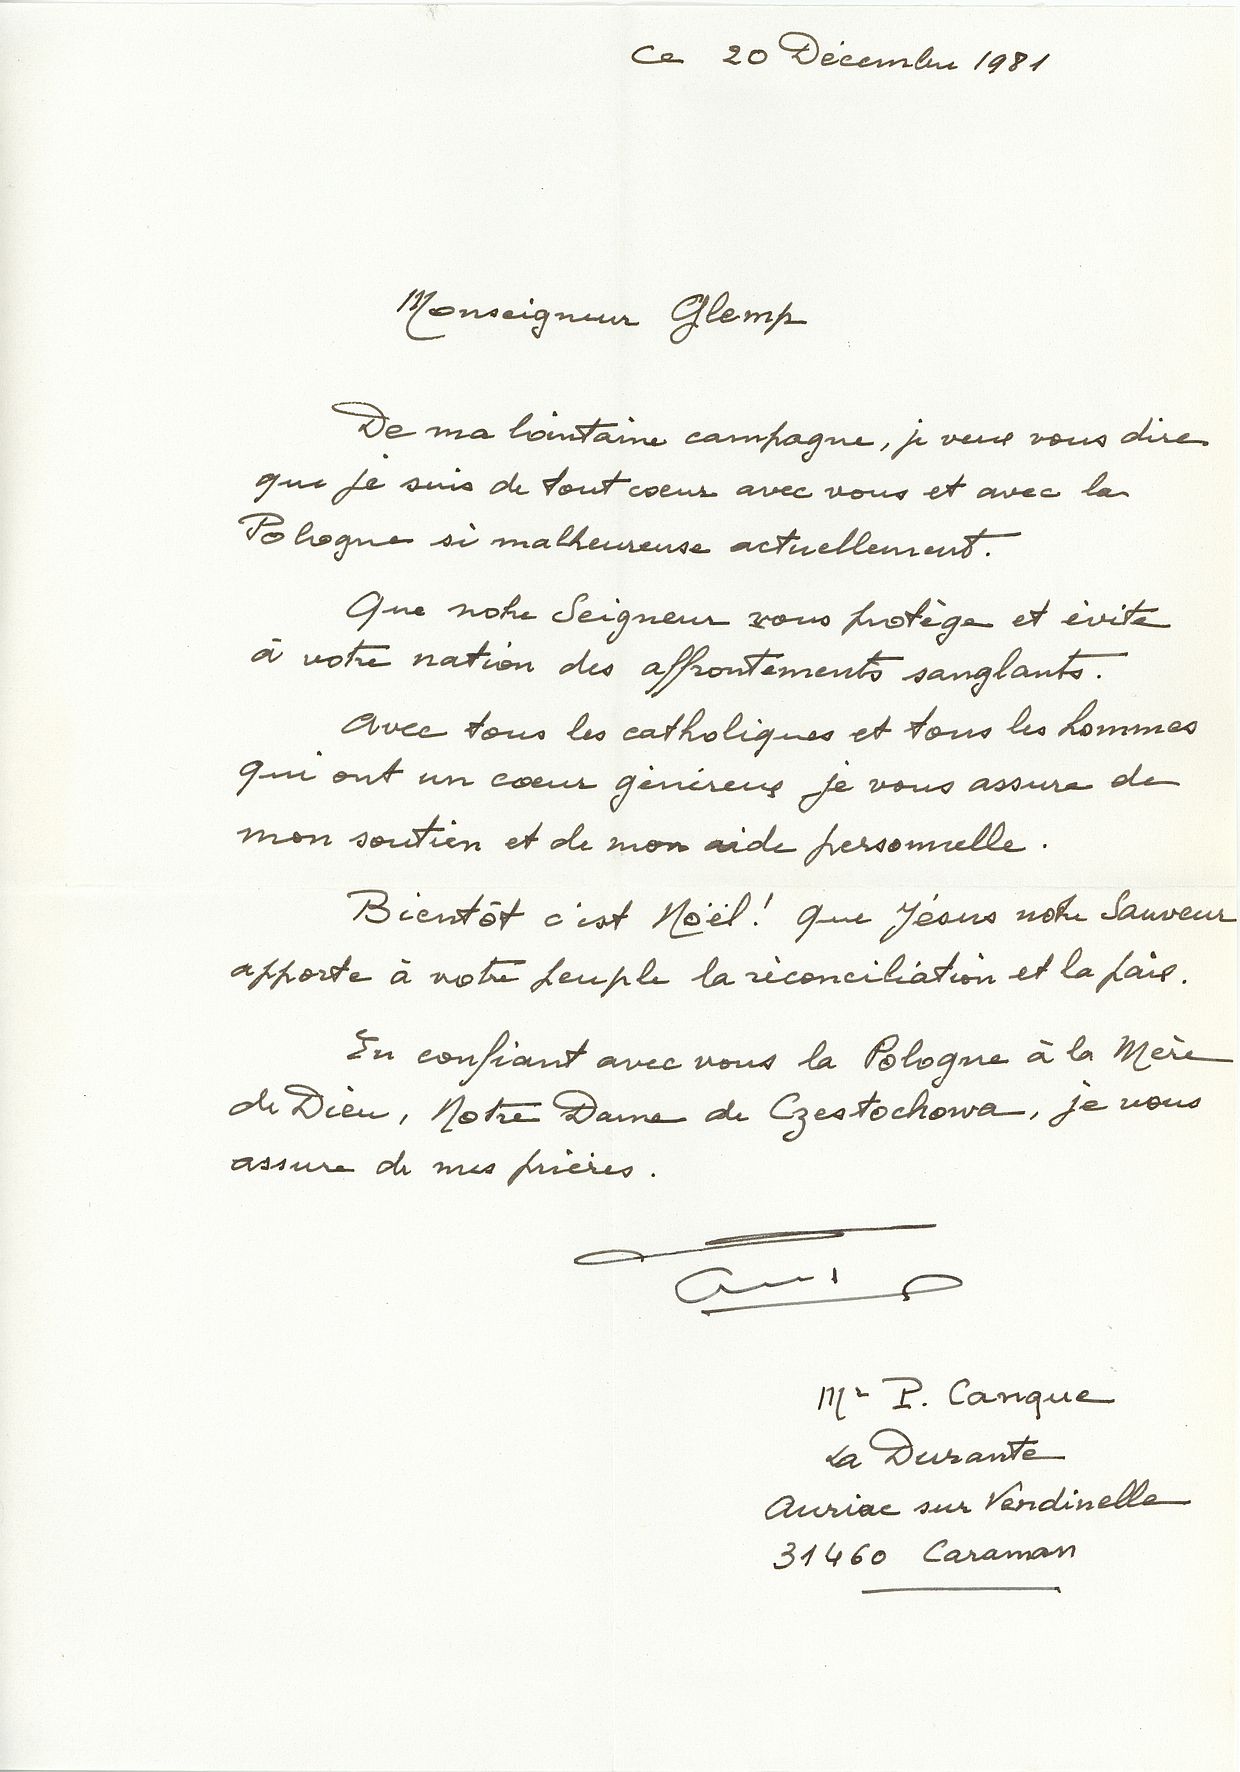 Ce 20 Décembre 1981
Monseigneur Glemp
De ma lointaine campagne, je veux vous dire
que je suis de tout coeur avec vous et avec la
Pologne si malheureuse actuellement.
Que notre Seigneur vous protège et évite
à votre nation des affrontements sanglants.
Avec tous les catholiques et tous les hommes
qui ont un coeur généreux je vous assure de
mon soutien et de mon aide personnelle.
Bientôt c'est Noël! Que Jésus notre Sauveur
apporte à votre peuple la réconciliation et la paix.
En confiant avec vous la Pologne à la Mère
de Dieu, Notre Dame de Czestochowa, je vous
assure de mes prières.
Mr P. Canque
La Durante
Auriac sur Vendinelle
31460 Caraman